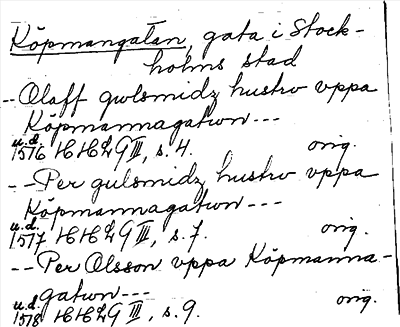 Köpmangatan, gata i Stock-
holms stad
-- Olaff gwlsmidz hustrv vppa
Köpmannagatwn ---
u.d.
1516 HHLG III, s. 4. orig.
-- Per gulsmidz hustrv vppa
Köpmannagatwn ---
u.d.
1517 HHLG III, s. 7. orig.
-- Per Olsson vppa Köpmanna-
gatwn ---
u.d.
1518 HHLG III, s. 9. orig.